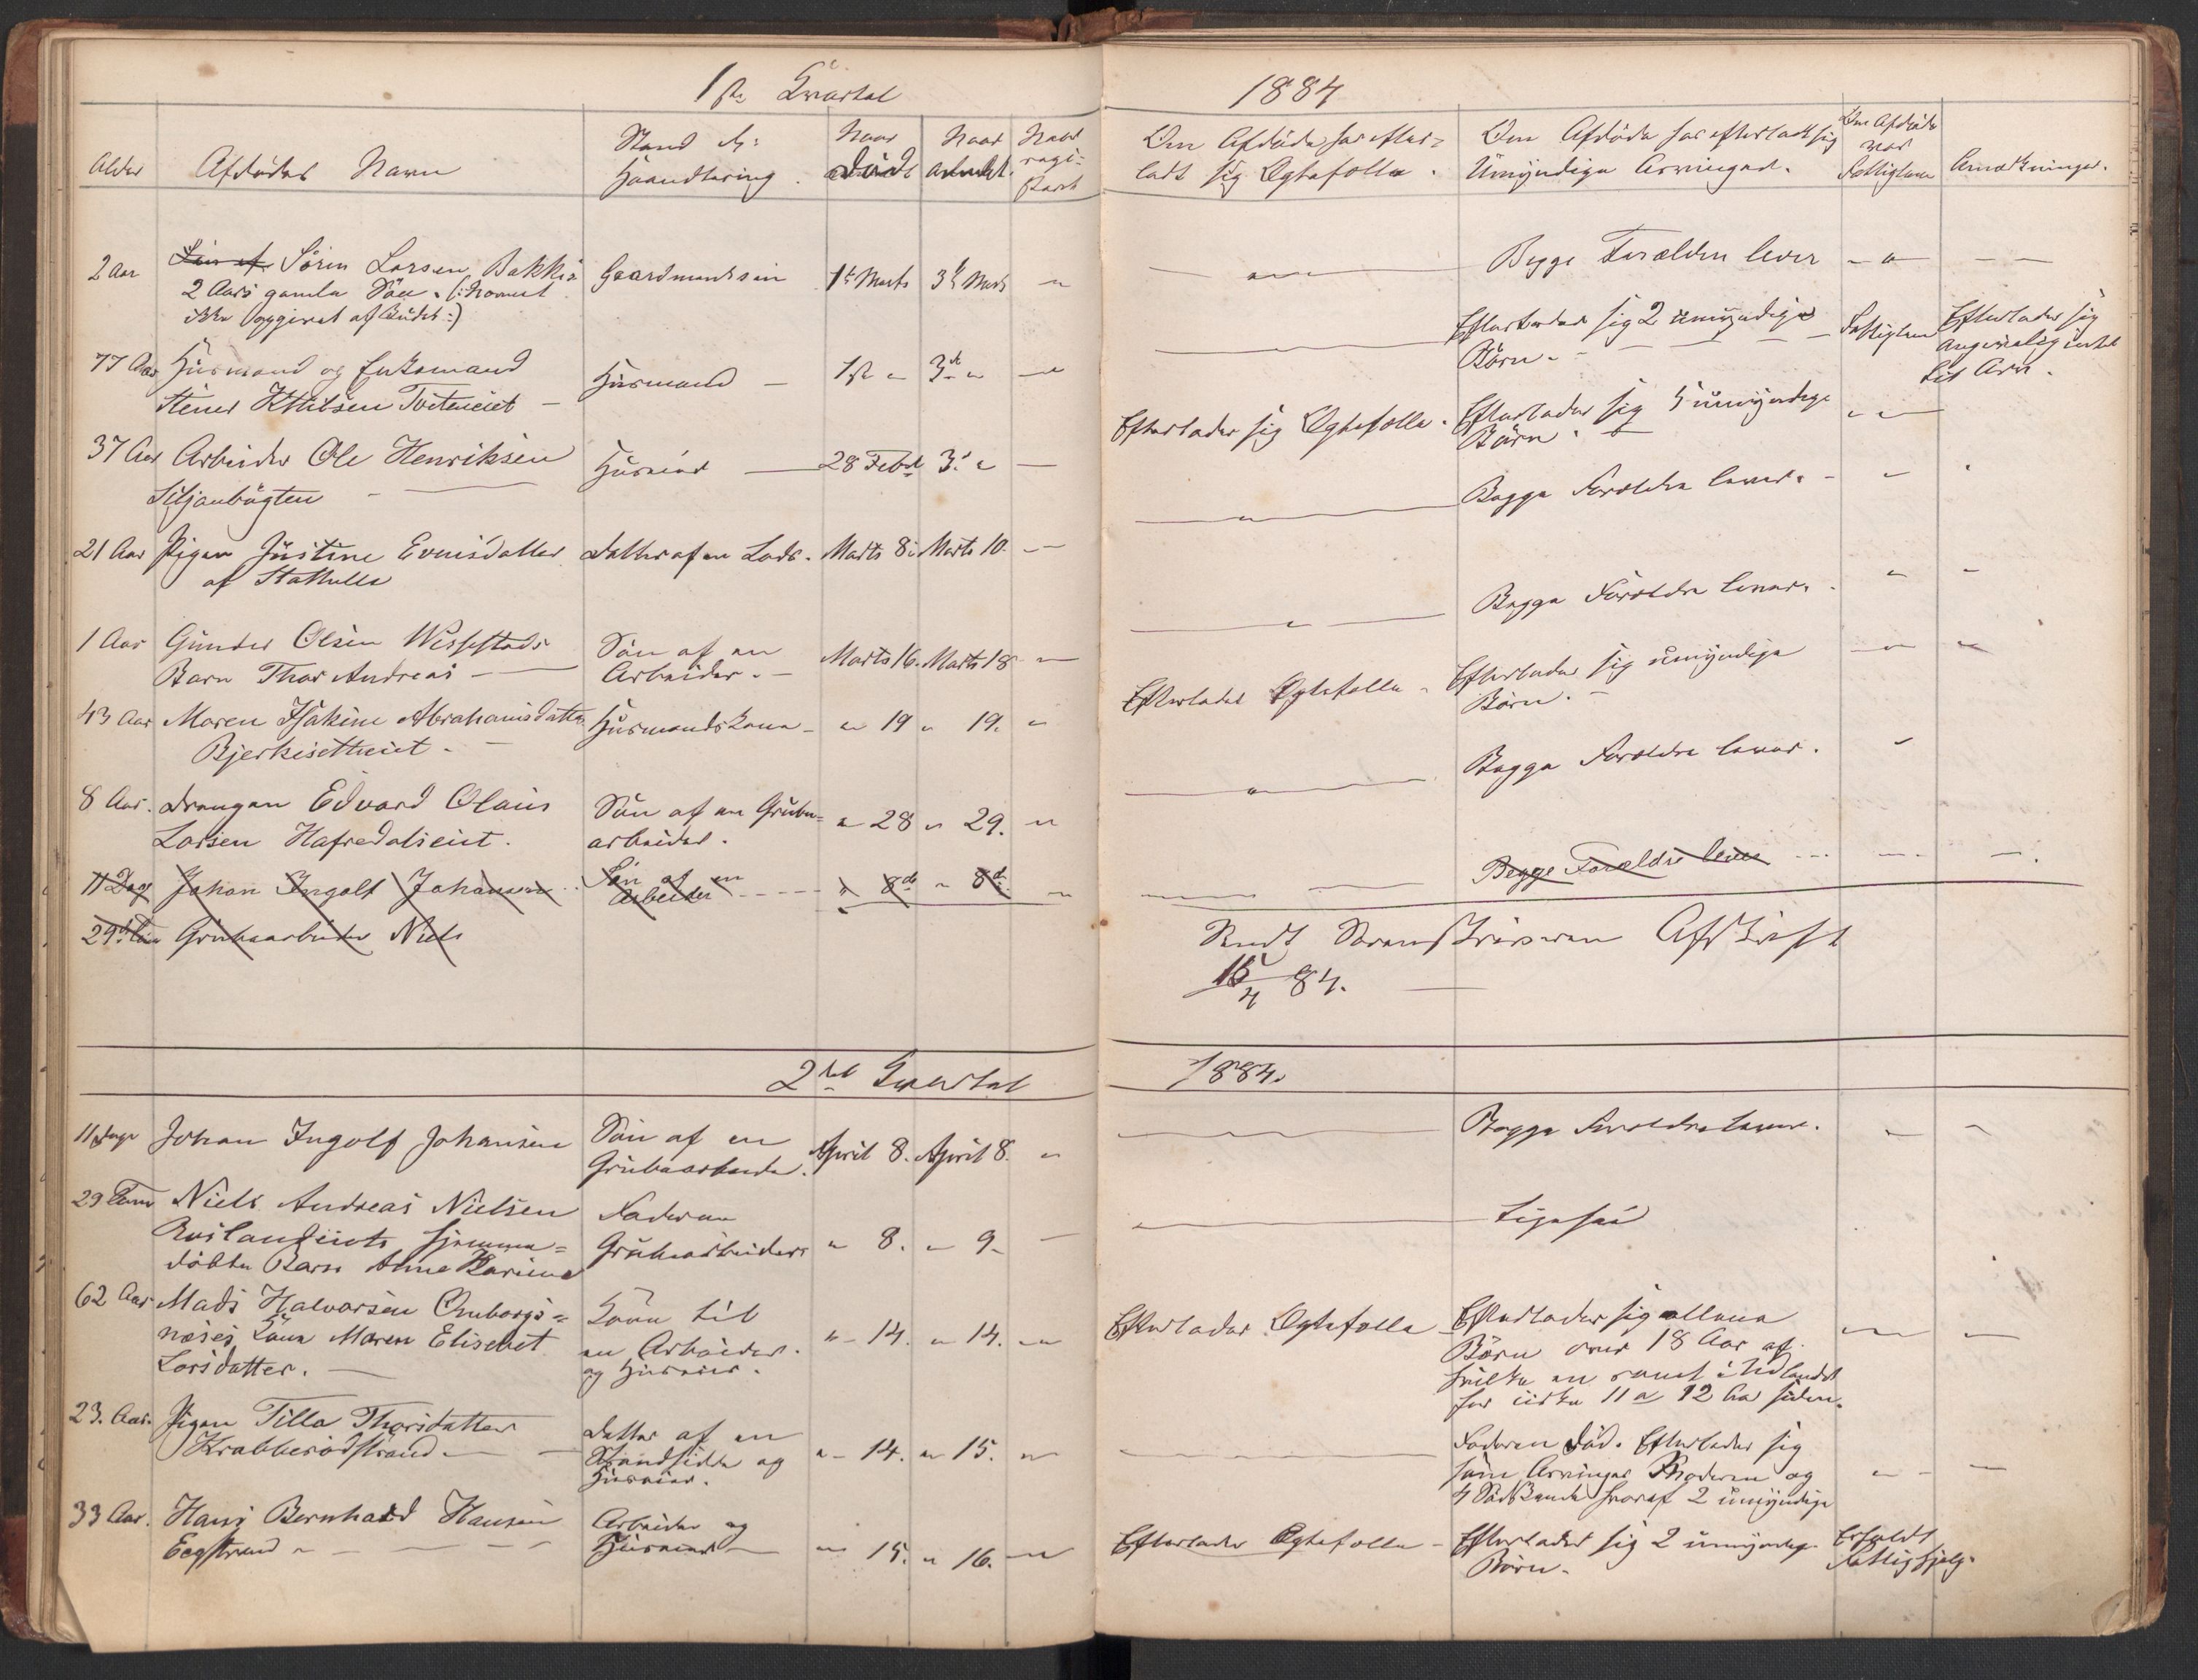 1ste Kvartal 1884
Alder
Afdødes Navn
Stand &:
Haandtering.
Naar
Død
Naar
anmeldt.
Naar
regi-
strert
Den Afdøde har efter-
ladt sig Ægtefælle.
Den Afdøde har efterladt sig
Umyndige Arvinger.
Den Afdøde
var
Fattiglem
Anmærkninger.
2 Aar
Søn af Sören Larsen Bakkis
2 Aars gamle Søn. (: Navnet
ikke opgivet af Budet :)
Gaardmandssøn
1ste Marts
3de Marts
Begge Forældre lever
77 Aar
Husmand og Enkemand
Stener Kittilsen Tveteneiet -
Husmand -
1ste "
3de "
Efterlader sig 2 umyndige
Børn. -
Fattiglem
Efterlader sig
angivelig intet
til Arv.
37 Aar
Arbeider Ole Henriksen
Siljanbugten -
Huseier -
28 Febr
3. "
Efterlader sig Ægtefælle.
Efterlader sig 5 umyndige
Børn. -
21 Aar
Pigen Justine Evensdatter
af Stathelle
Datter af en Lods.
Marts 8.
Marts 10.
Begge Forældre lever. -
1 Aar
Gunder Olsen Wissestads
Barn Thor Andreas -
Søn af en
Arbeider. -
Marts 16.
Marts 18
Begge Forældre lever.
43 Aar
Maren Isakine Abrahamsdatter
Bjerkiseteiet. -
Husmandskone -
" 19
" 19.
Efterlader Ægtefælle -
Efterlader sig umyndige
Børn. -
8 Aar.
Drengen Edvard Olaus
Larsen Hafredalseiet.
Søn af en Grube-
arbeider.
" 28
" 29.
Begge Forældre lever.
11 Dage
Johan Ingolf Johansen
Søn af en
Arbeider
" 8de
" 8de
Begge Forældre lever
Grubearbeider Niels
Sendt Sorenskriveren Afskrift
15/4 84.
2det Kvartal 1884.
11 Dage
Johan Ingolf Johansen
Søn af en
Grubearbeider.
April 8.
April 8.
Begge Forældre lever.
29 Timer
Niels Andreas Nielsen
hjemme-
døbte Barn Anne Karine
Faderen
Grubearbeider
" 8.
" 9.
Ligesaa
62 Aar
Mads Halvorsen Omborgs-
næses Kone Maren Elisebet
Larsdatter. -
Kone til
en Arbeider.
og Huseier.
" 14.
" 14.
Efterlader Ægtefælle
Efterlader sig allene
Børn over 18 Aar af
hvilke en rømt i Udlandet
for cirka 11 a 12 Aar siden.
23. Aar.
Pigen Tilla Thorsdatter
Krabberødstrand. -
Datter af en
Strandsidder og
Huseier.
" 14.
" 15.
Faderen død. Efterlader sig
som Arvinger Moderen og
4 Sødskende hvoraf 2 umyndige
33 Aar.
Hans Bernhard Hansen
Eegstrand -
Arbeider og
Huseier -
" 15.
" 16.
Efterlader Ægtefælle -
Efterlader sig 2 umyndige
Børn.
Erholdt
Fattighjelp.